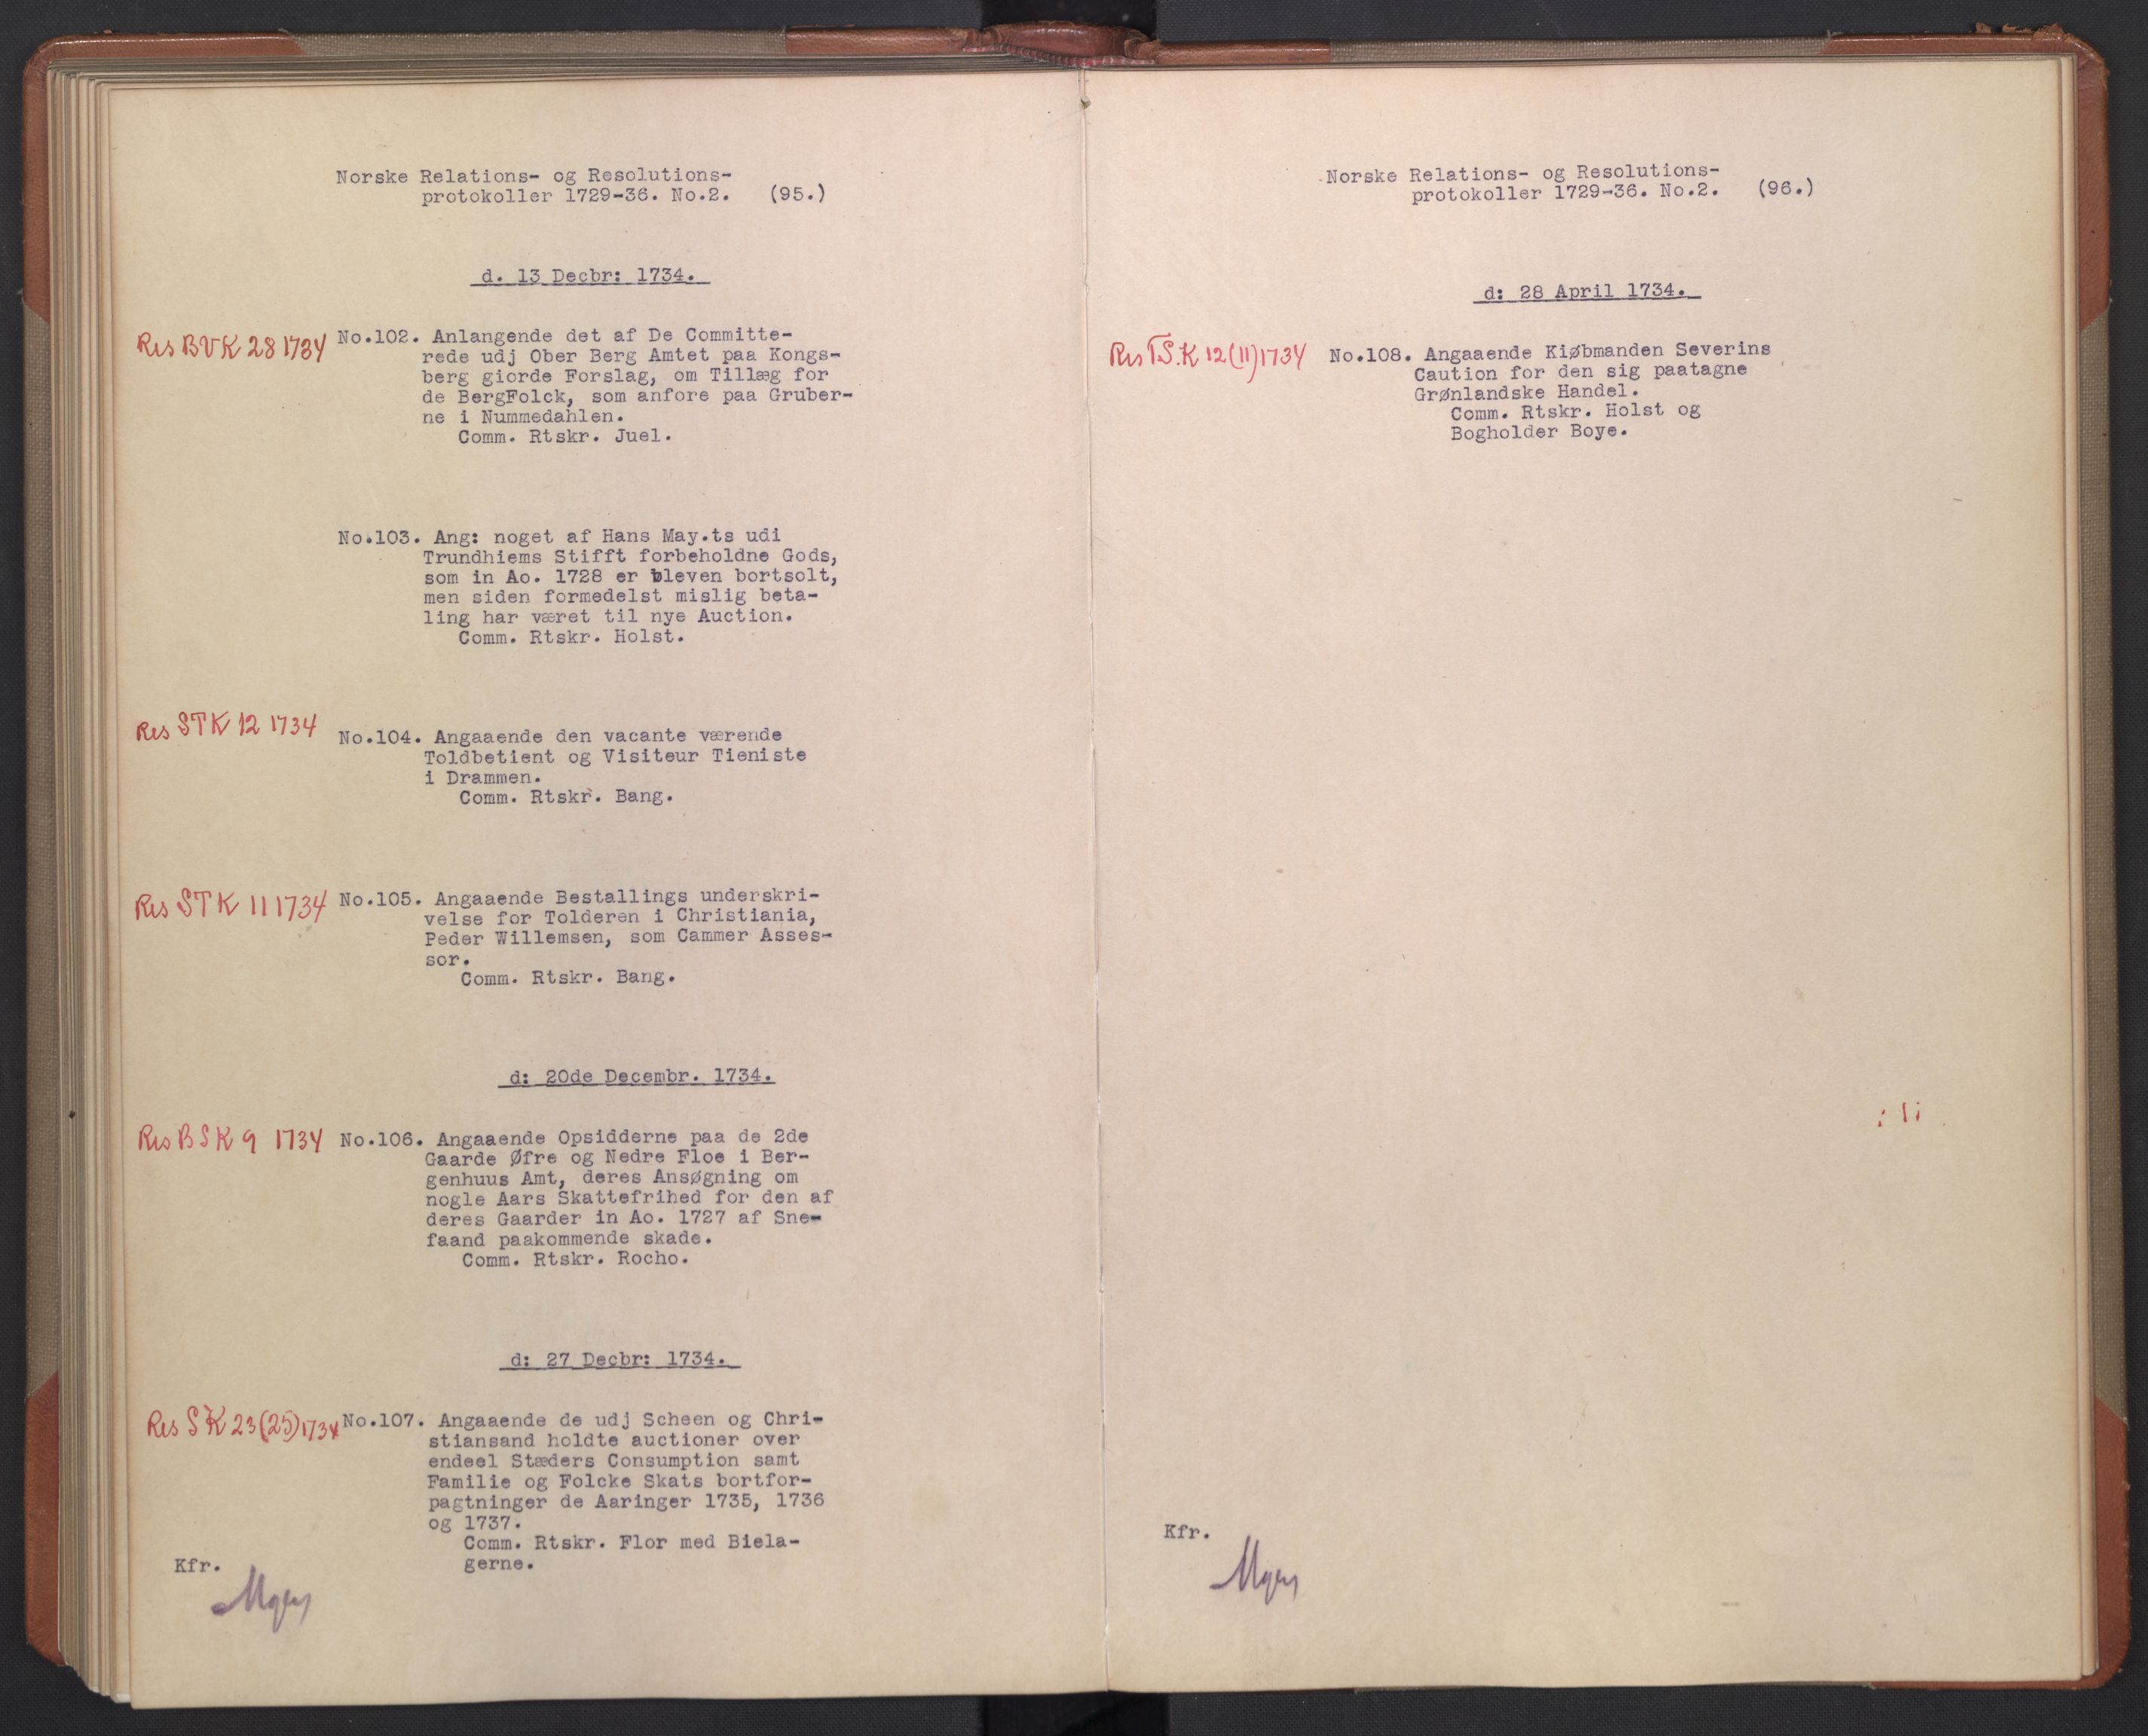 Norske Relations- og Resolutions-
protokoller 1729-36. No.2. (95.)
d. 13 Decbr: 1734.
Res BVK 28 1734
No.102. Anlangende det af De Committe-
rede udj Ober Berg Amtet paa Kongs-
berg giorde Forslag, om Tillæg for
de BergFolck, som anfore paa Gruber-
ne i Nummedahlen.
Comm. Rtskr. Juel.
No.103. Ang: noget af Hans May.ts udi
Trundhiems Stifft forbeholdne Gods,
som in Ao. 1728 er bleven bortsolt,
men siden formedelst mislig beta-
ling har været til nye Auction.
Comm. Rtskr. Holst.
Res STK 12 1734
No.104. Angaaende den vacante værende
Toldbetient og Visiteur Tieniste
i Drammen.
Comm. Rtskr. Bang.
Res STK 11 1734
No.105. Angaaende Bestallings underskri-
velse for Tolderen i Christiania,
Peder Willemsen, som Cammer Asses-
sor.
Comm. Rtskr. Bang.
d: 20de Decembr. 1734.
Res BSK 9 1734
No.106. Angaaende Opsidderne paa de 2de
Gaarde Øfre og Nedre Floe i Ber-
genhuus Amt, deres Ansøgning om
nogle Aars Skattefrihed for den af
deres Gaarder in Ao. 1727 af Sne-
faand paakommende skade.
Comm. Rtskr. Rocho.
d: 27 Decbr: 1734.
Res SK 23(25)1734
No.107. Angaaende de udj Scheen og Chri-
stiansand holdte auctioner over
endeel Stæders Consumption samt
Familie og Folcke Skats bortfor-
pagtninger de Aaringer 1735, 1736
og 1737.
Comm. Rtskr. Flor med Biela-
gerne.
Kfr.
Norske Relations- og Resolutions-
protokoller 1729-36. No.2. (96.)
d: 28 April 1734.
Res TS.K 12(11)1734
No.108. Angaaende Kiøbmanden Severins
Caution for den sig paatagne
Grønlandske Handel.
Comm. Rtskr. Holst og
Bogholder Boye.
Kfr.